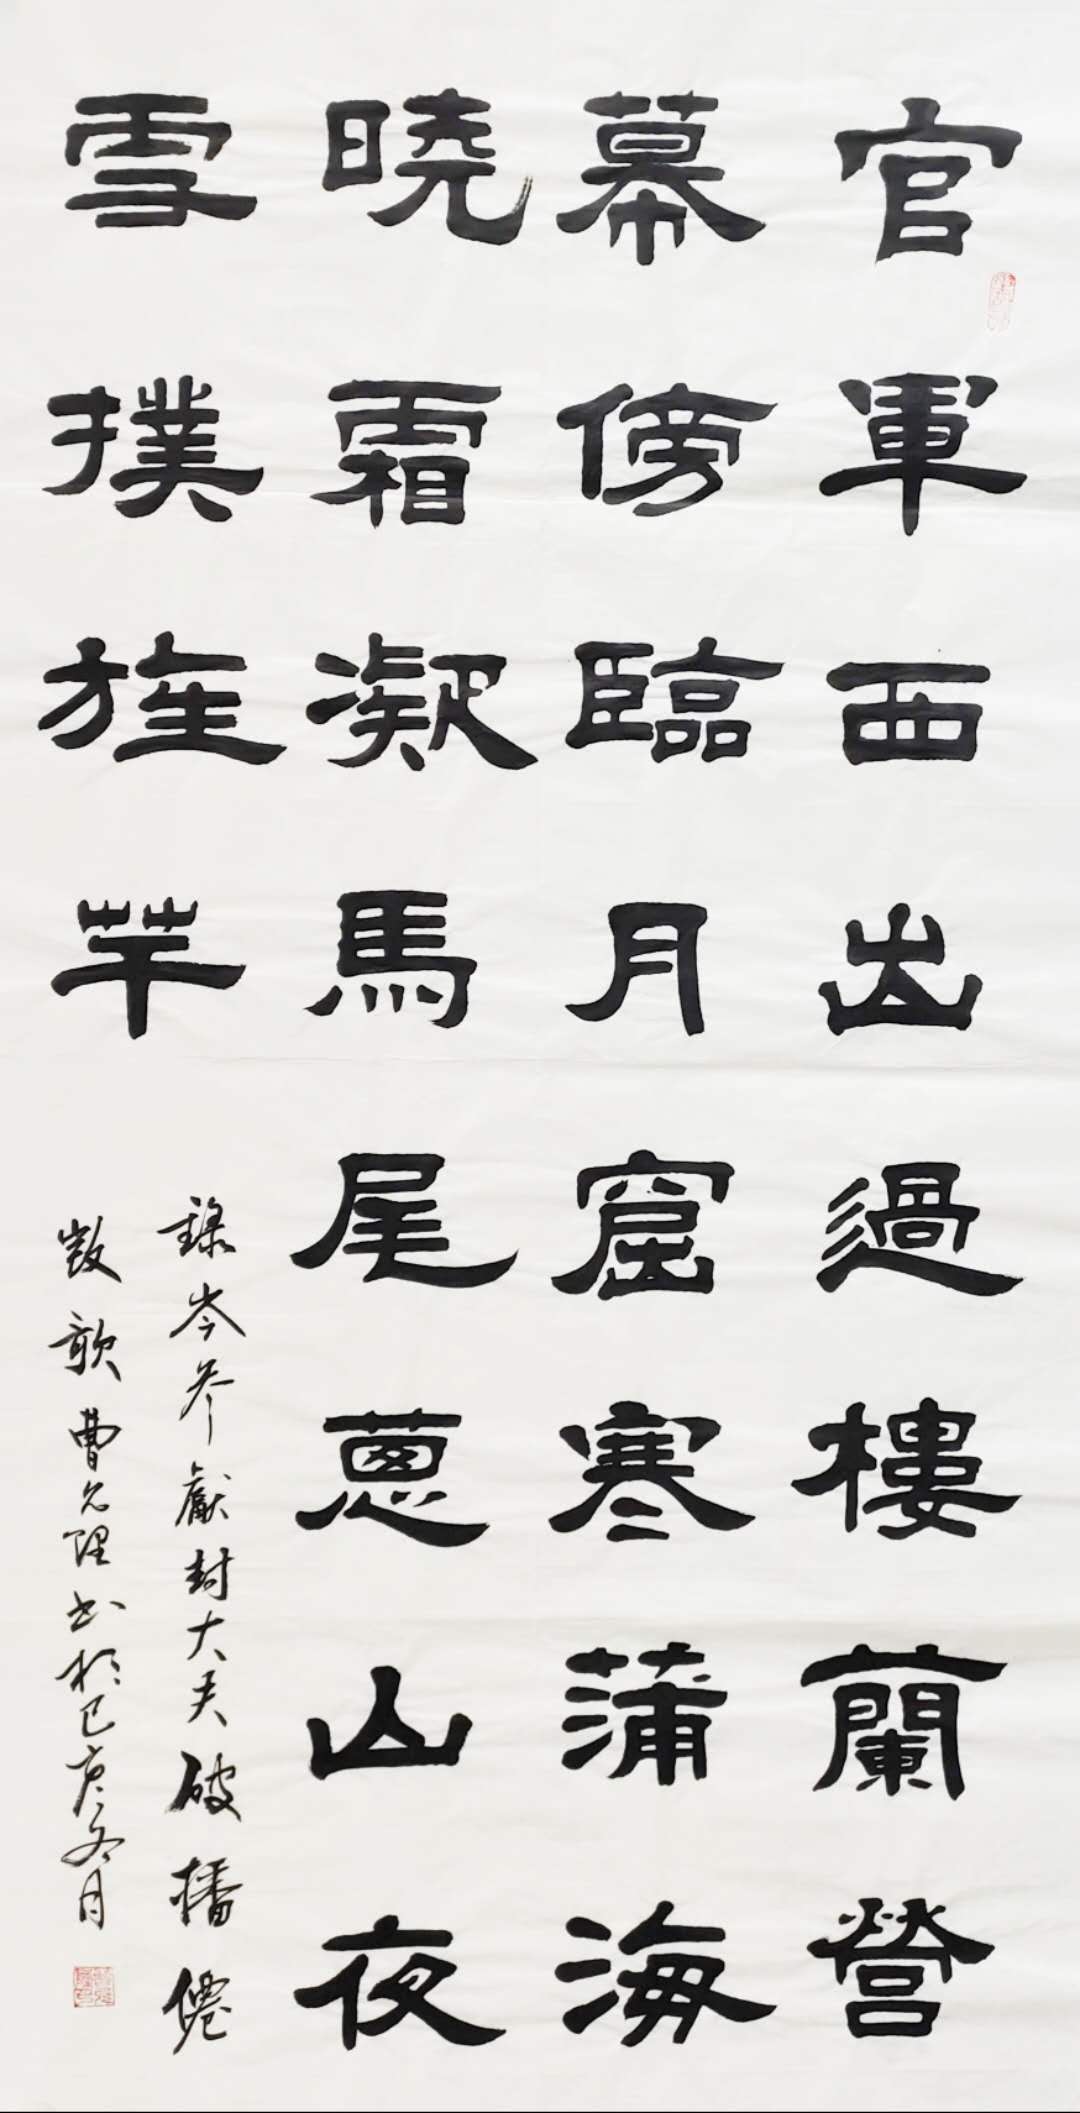 官軍西出過樓蘭營
幕傍臨月窟寒蒲海
曉霜凝馬尾蔥山夜
雪撲旌竿
錄岑參獻封大夫破播僊
凱歌曹允理书於己亥冬月